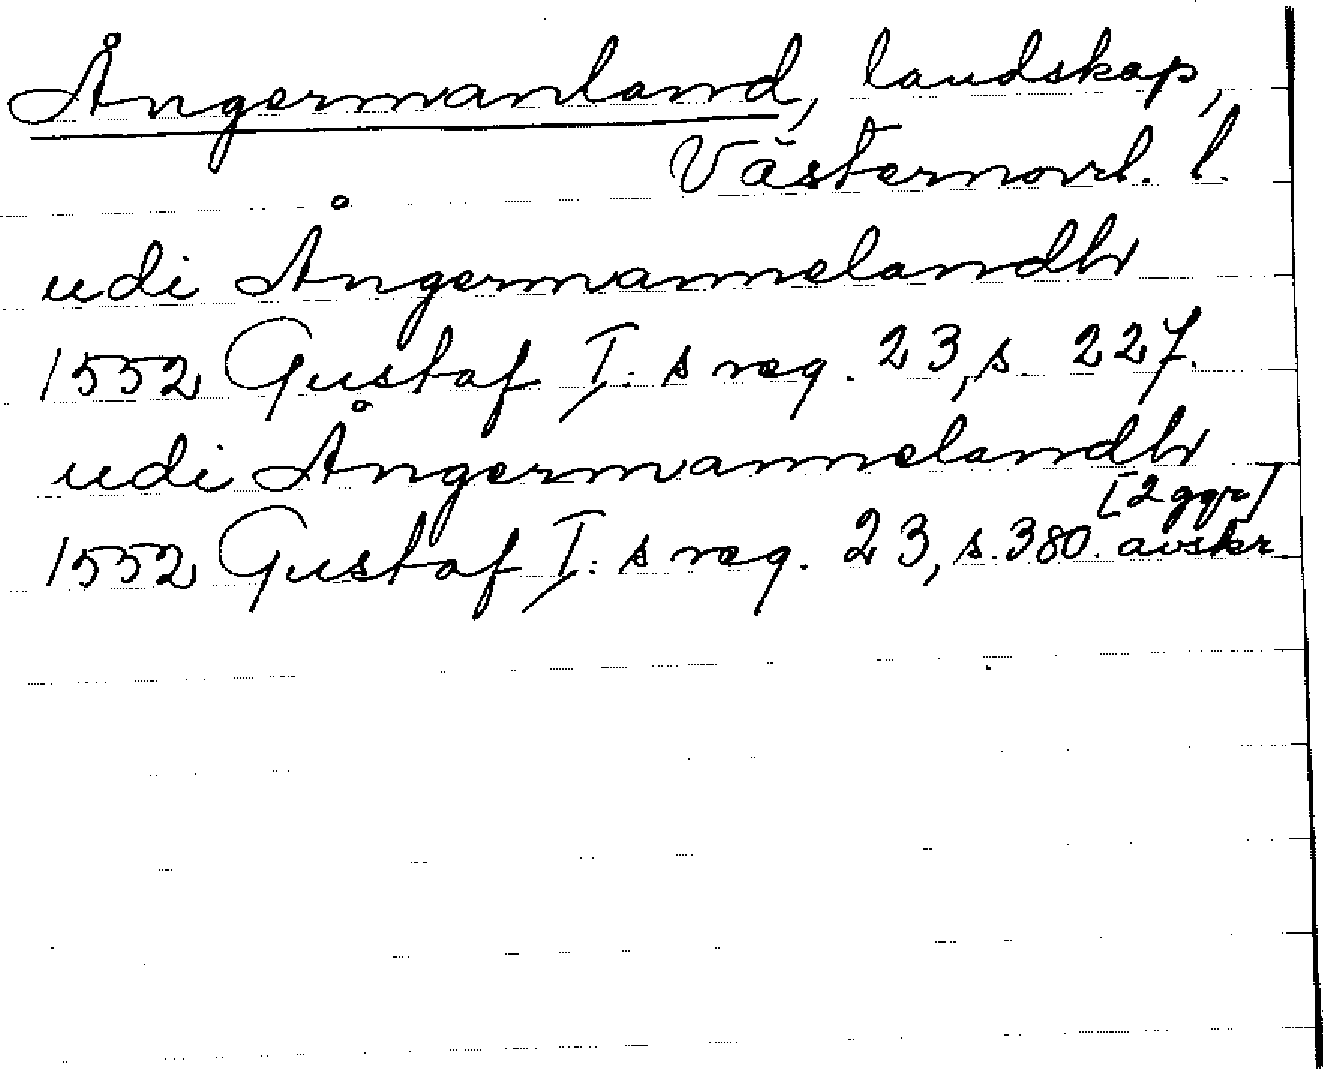 Ångermanland, landskap,
Västernorrl. l.
udi Ångermannelandh
1552 Gustaf I:s reg. 23, s. 227.
udi Ångermannelandh
[2 ggr]
1552 Gustaf I:s reg. 23, s. 380. avskr